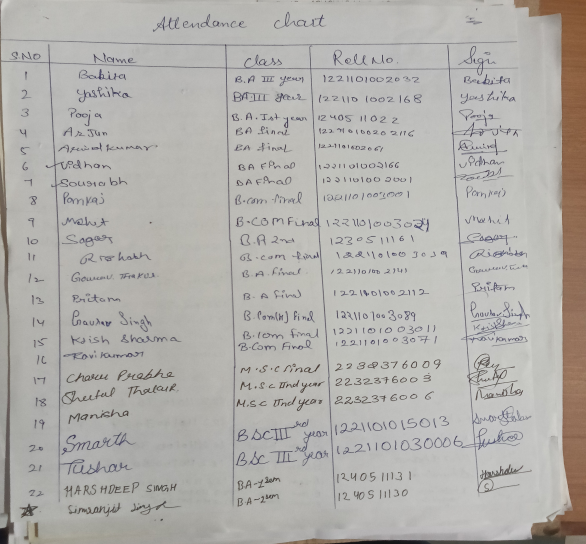 Attendance chart
S.NO Name Class Roll No. Sign
1 Bakita B.A III year 1221101002032 Bakita
2 Yashika BA III year 1221101002168 Yashika
3 Pooja B.A. Ist year 1240511022 Pooja
4 Arjun BA final
5 Arvind Kumar BA final 1221101002061 Arvind
6 Vidhan BA Final 1221101002166 Vidhan
7 Sourabh BA Final 1221101002001
8 Pankaj B.com final 1221101003001 Pankaj
9 Mohit B.COM Final Mohit
10 Sagar B.A 2nd 1230511161 Sagar
11 Rishabh B.com final 1221101003039
12 Gourav Thakur B.A. final 1221101002141
13 Pritom B.A final 1221101002112 Pritom
14 Gaurav Singh B.com final 1221101003089 Singh
15 Krish Sharma B.com final 1221101003011 Krish
16 Ravi Kumar B.Com Final 1221101003071 Ravikumar
17 Charu Prabha M.S.C final 2232376009
18 Shutul Thakur M.Sc IInd year 2232376003
19 Manisha M.Sc IInd year 2232376006 Manisha
20 Smarth BSC IIIrd year 1221101015013
21 Tushar BSC IIIrd year 1221101030006 Tushar
22 HARSHDEEP SINGH BA-1sem 1240511131 Harshdeep
Simranjit Singh B.A-2sem 1240511130